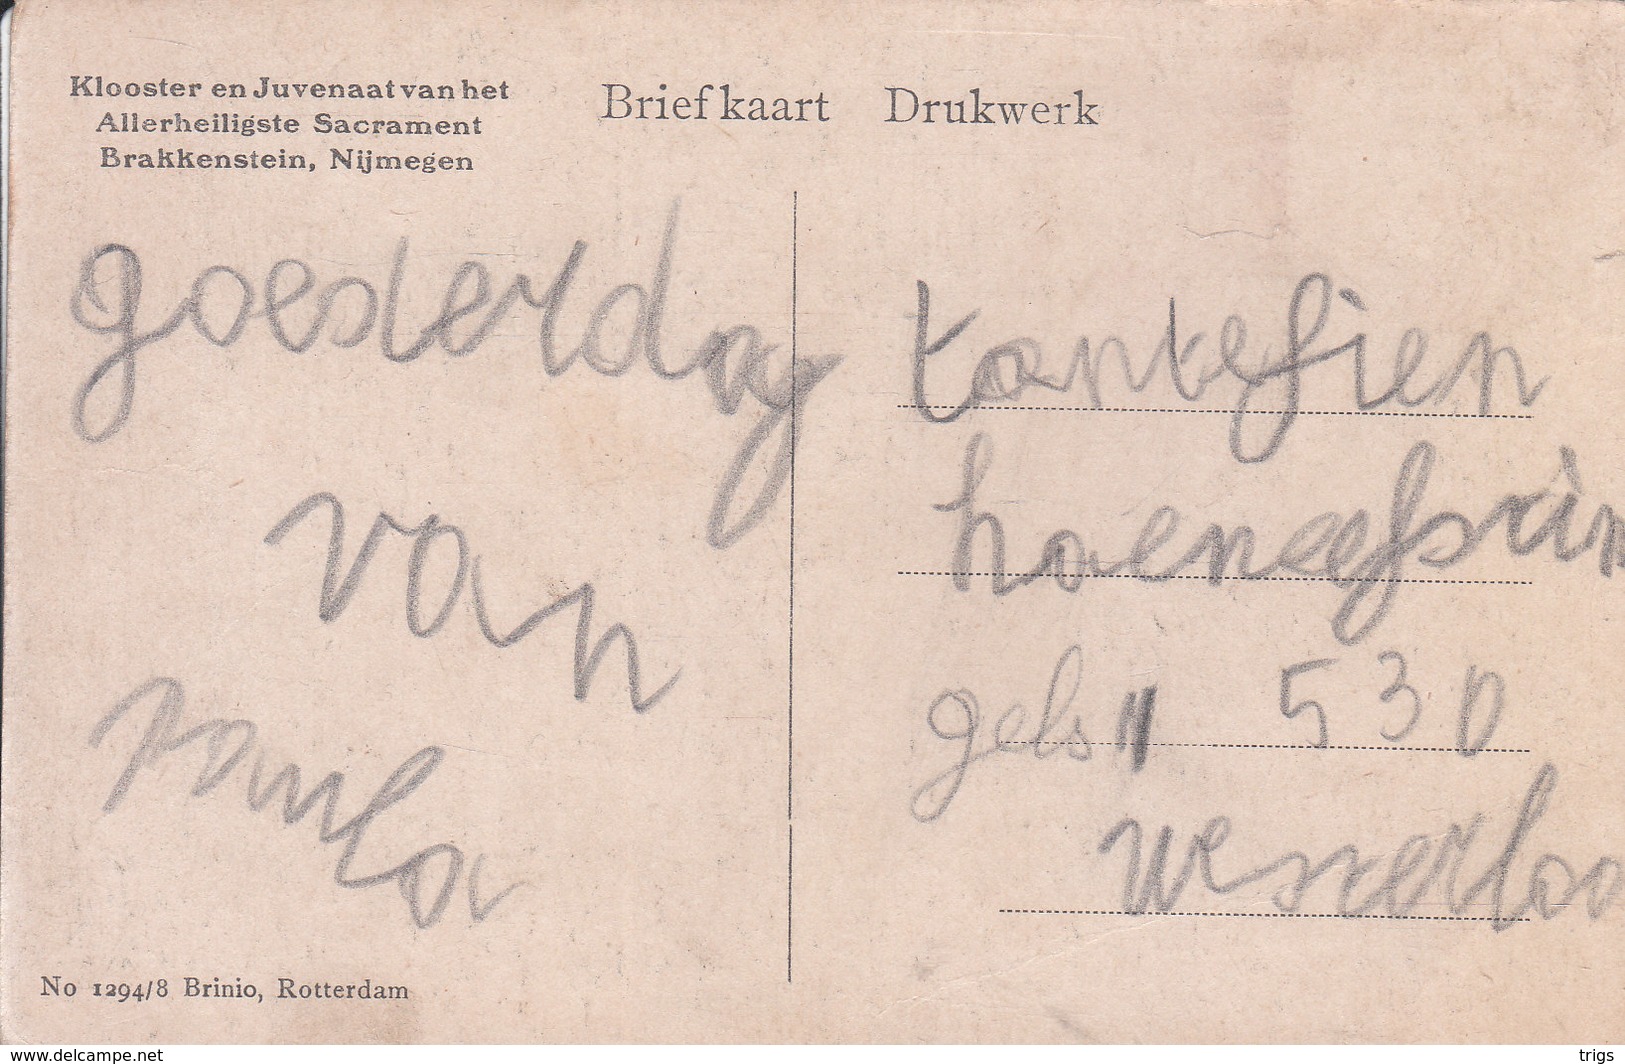 Klooster en Juvenaat van het
Allerheiligste Sacrament
Brakkenstein, Nijmegen
Briefkaart Drukwerk
goederdag
van
paula
tantefien
gels 11 530
westerloo
No 1294/8 Brinio, Rotterdam
www.delcampe.net
trigs